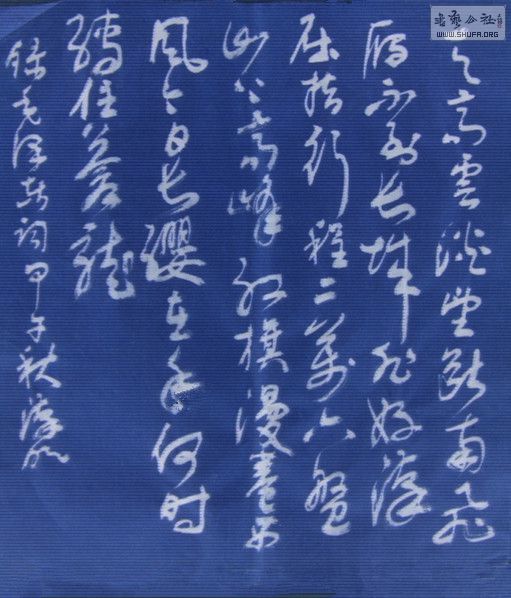 書藝公社
WWW.SHUFA.ORG
天高雲淡望斷南飛
雁不到长城非好漢
屈指行程二萬六盤
山上高峰红旗漫卷西
风今日长缨在手何时
缚住苍龙
録毛泽东词甲午秋